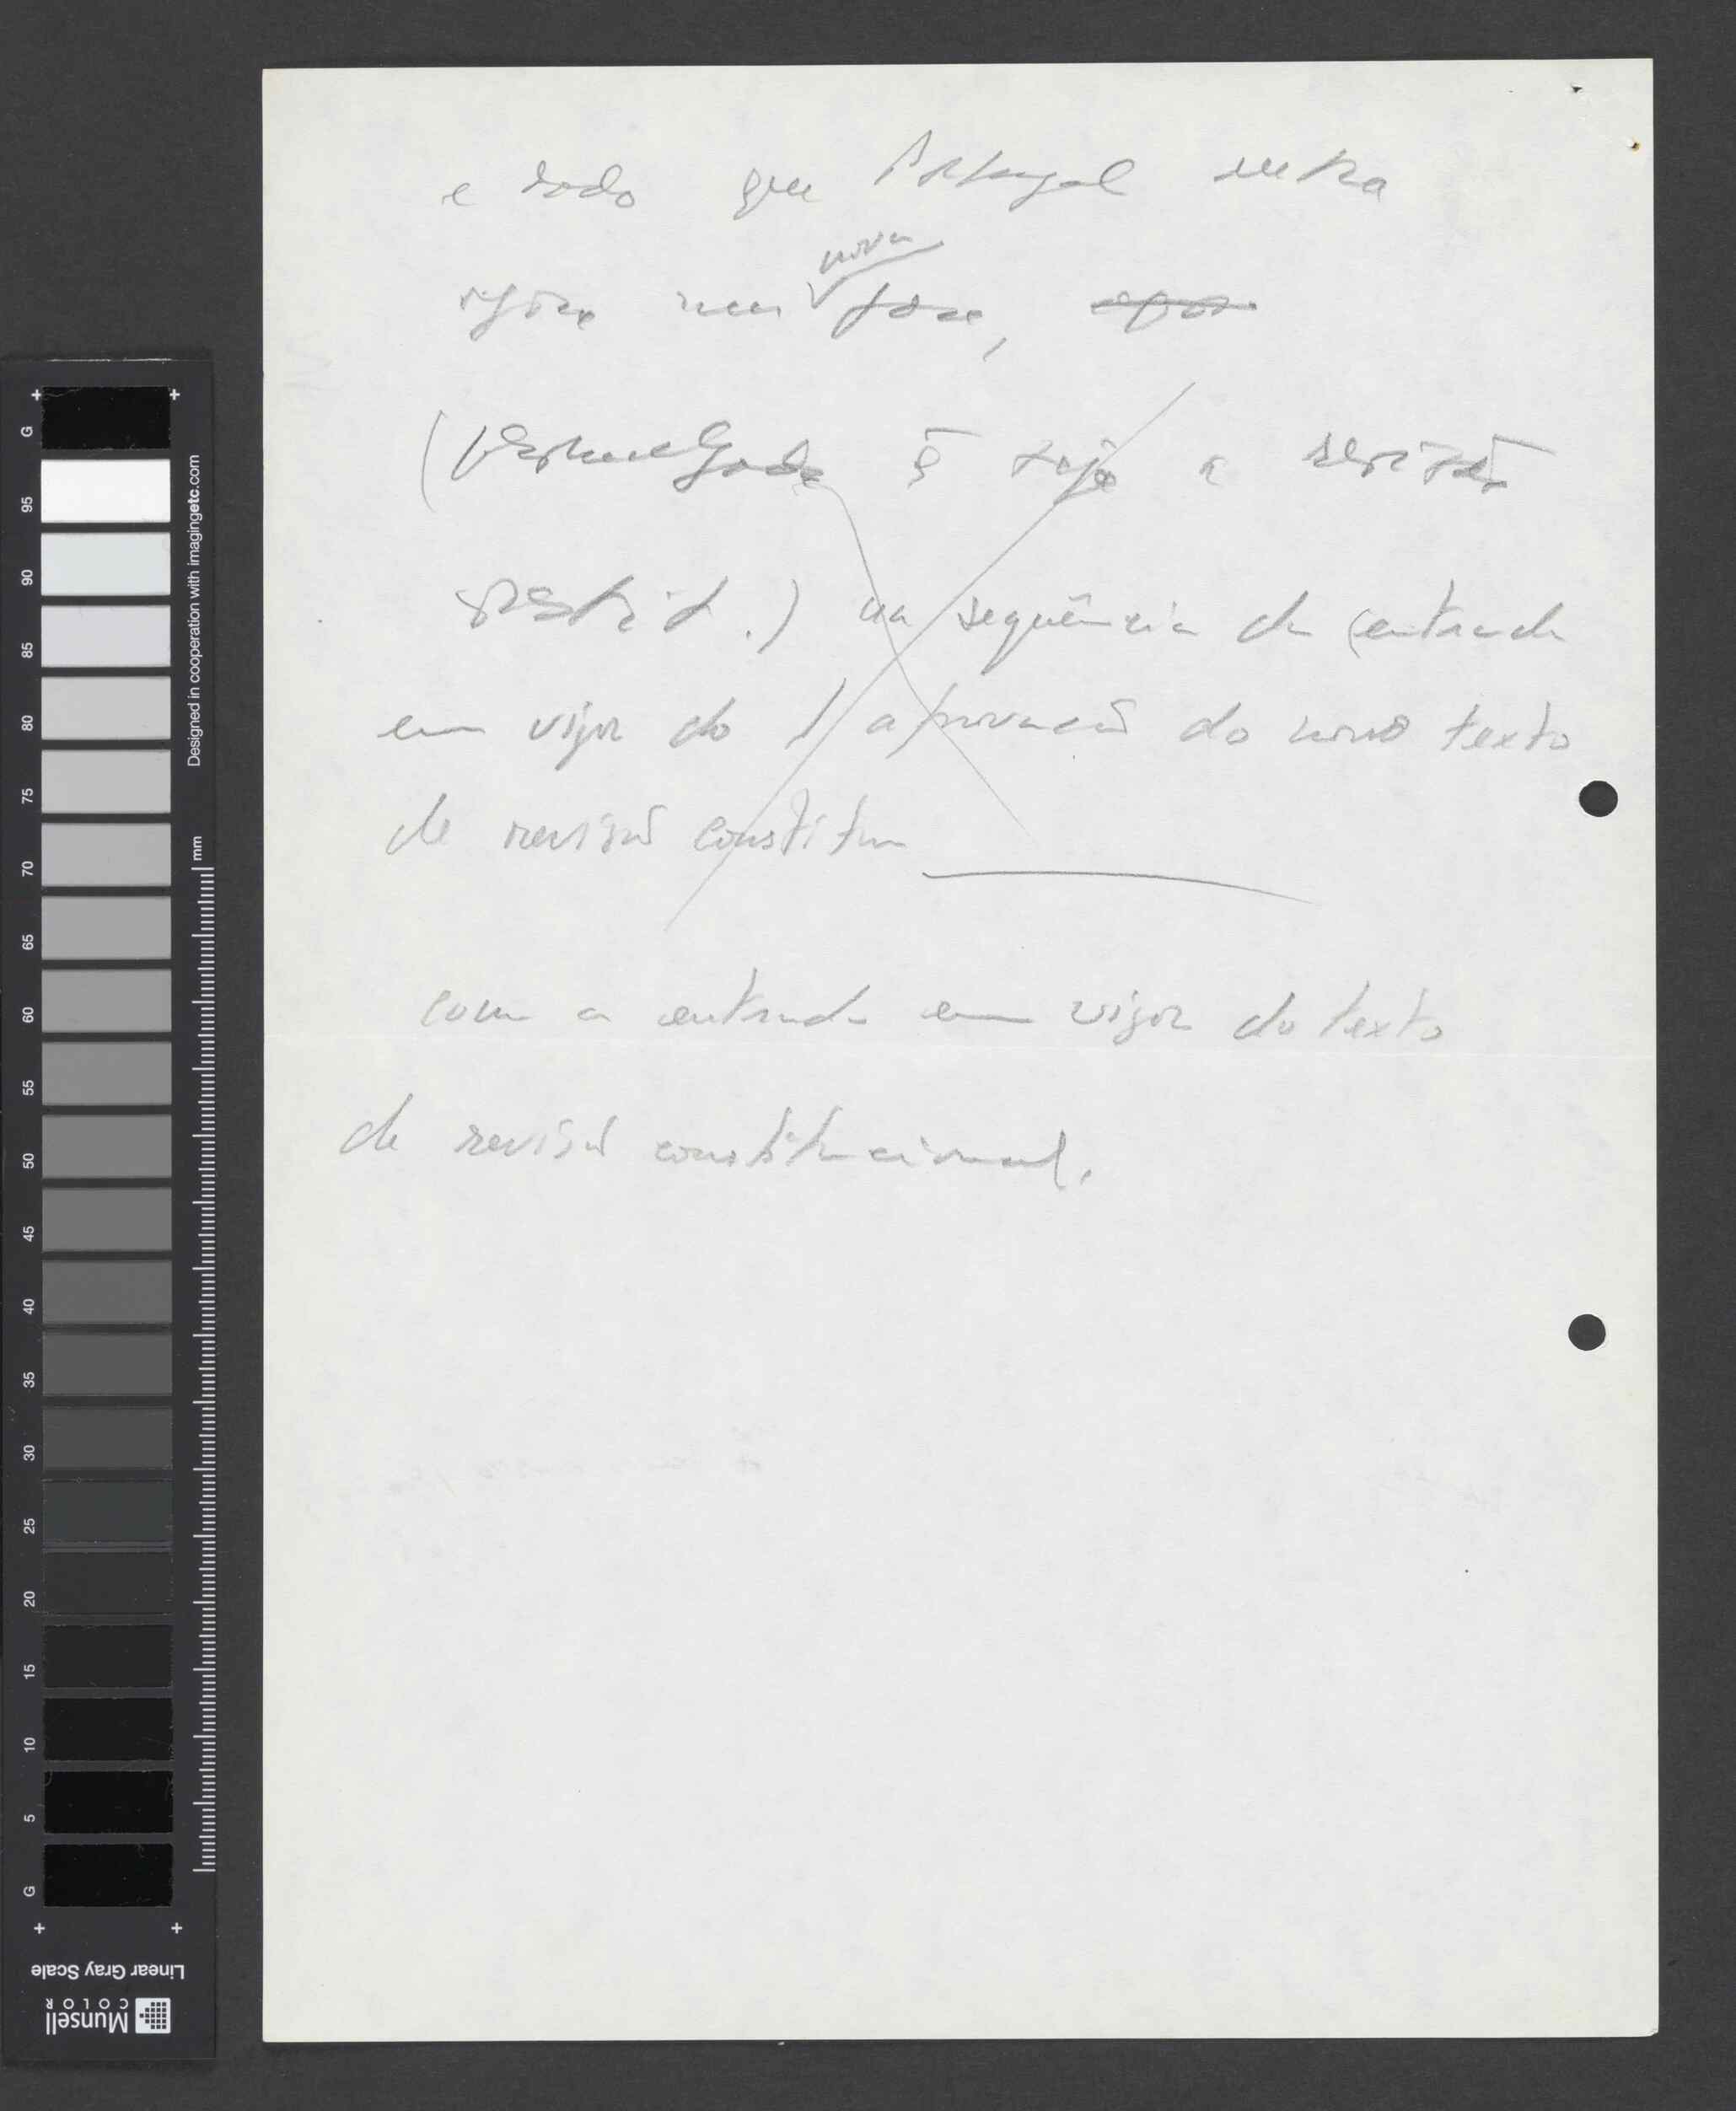 e dado que Portugal entra
nova
agora numa fase,
(promulgada q̄ seja a revisão
constit.) na sequência da (entrada
em vigor do / aprovação do novo texto
de revisão constitu
com a entrada em vigor do texto
de revisão constitucional.
G
95
90
85
80
75
70
65
60
55
50
45
40
35
30
25
20
15
10
5
G
mm
Designed in cooperation with imagingetc.com
Linear Gray Scale
Munsell
COLOR